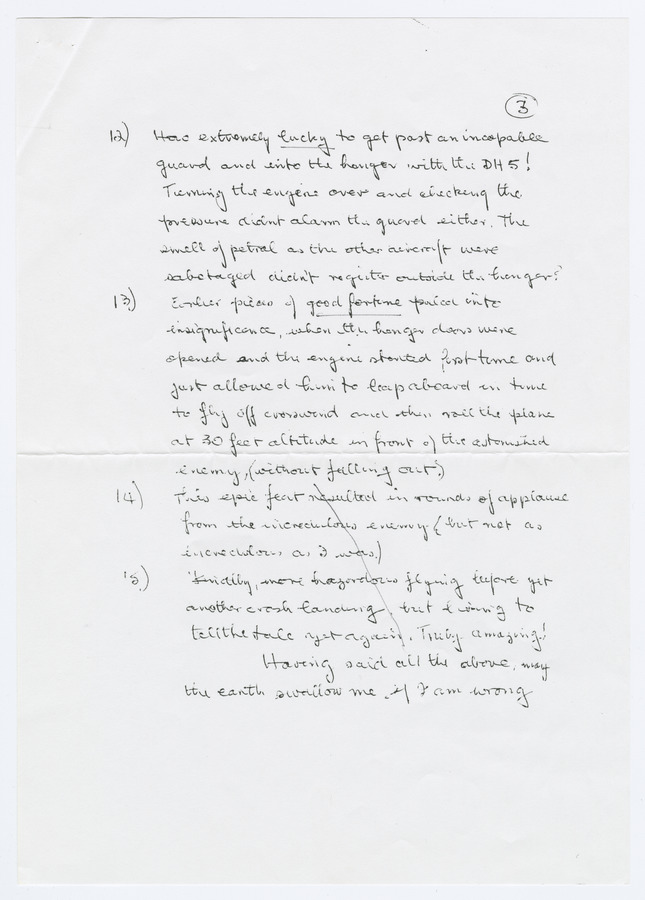 3
12) How extremely lucky to get past an incapable
guard and into the hanger with the DH5!
Turning the engine over and checking the
pressure didnt alarm the guard either. The
smell of petrol as the other aircraft were
sabotaged didn't register outside the hanger?
13) Earlier pieces of good fortune paled into
insignificance, when the hanger doors were
opened and the engine started first time and
just allowed him to leap aboard in time
to fly off crosswind and then roll the plane
at 30 feet altitude in front of the astonished
enemy, (without falling out!)
14) This epic feat resulted in rounds of applause
from the incredulous enemy (but not as
incredulous as I was.)
15) Finally, more hazardous flying before yet
another crash landing, but living to
tell the tale yet again. Truly amazing!
Having said all the above, may
the earth swallow me, if I am wrong